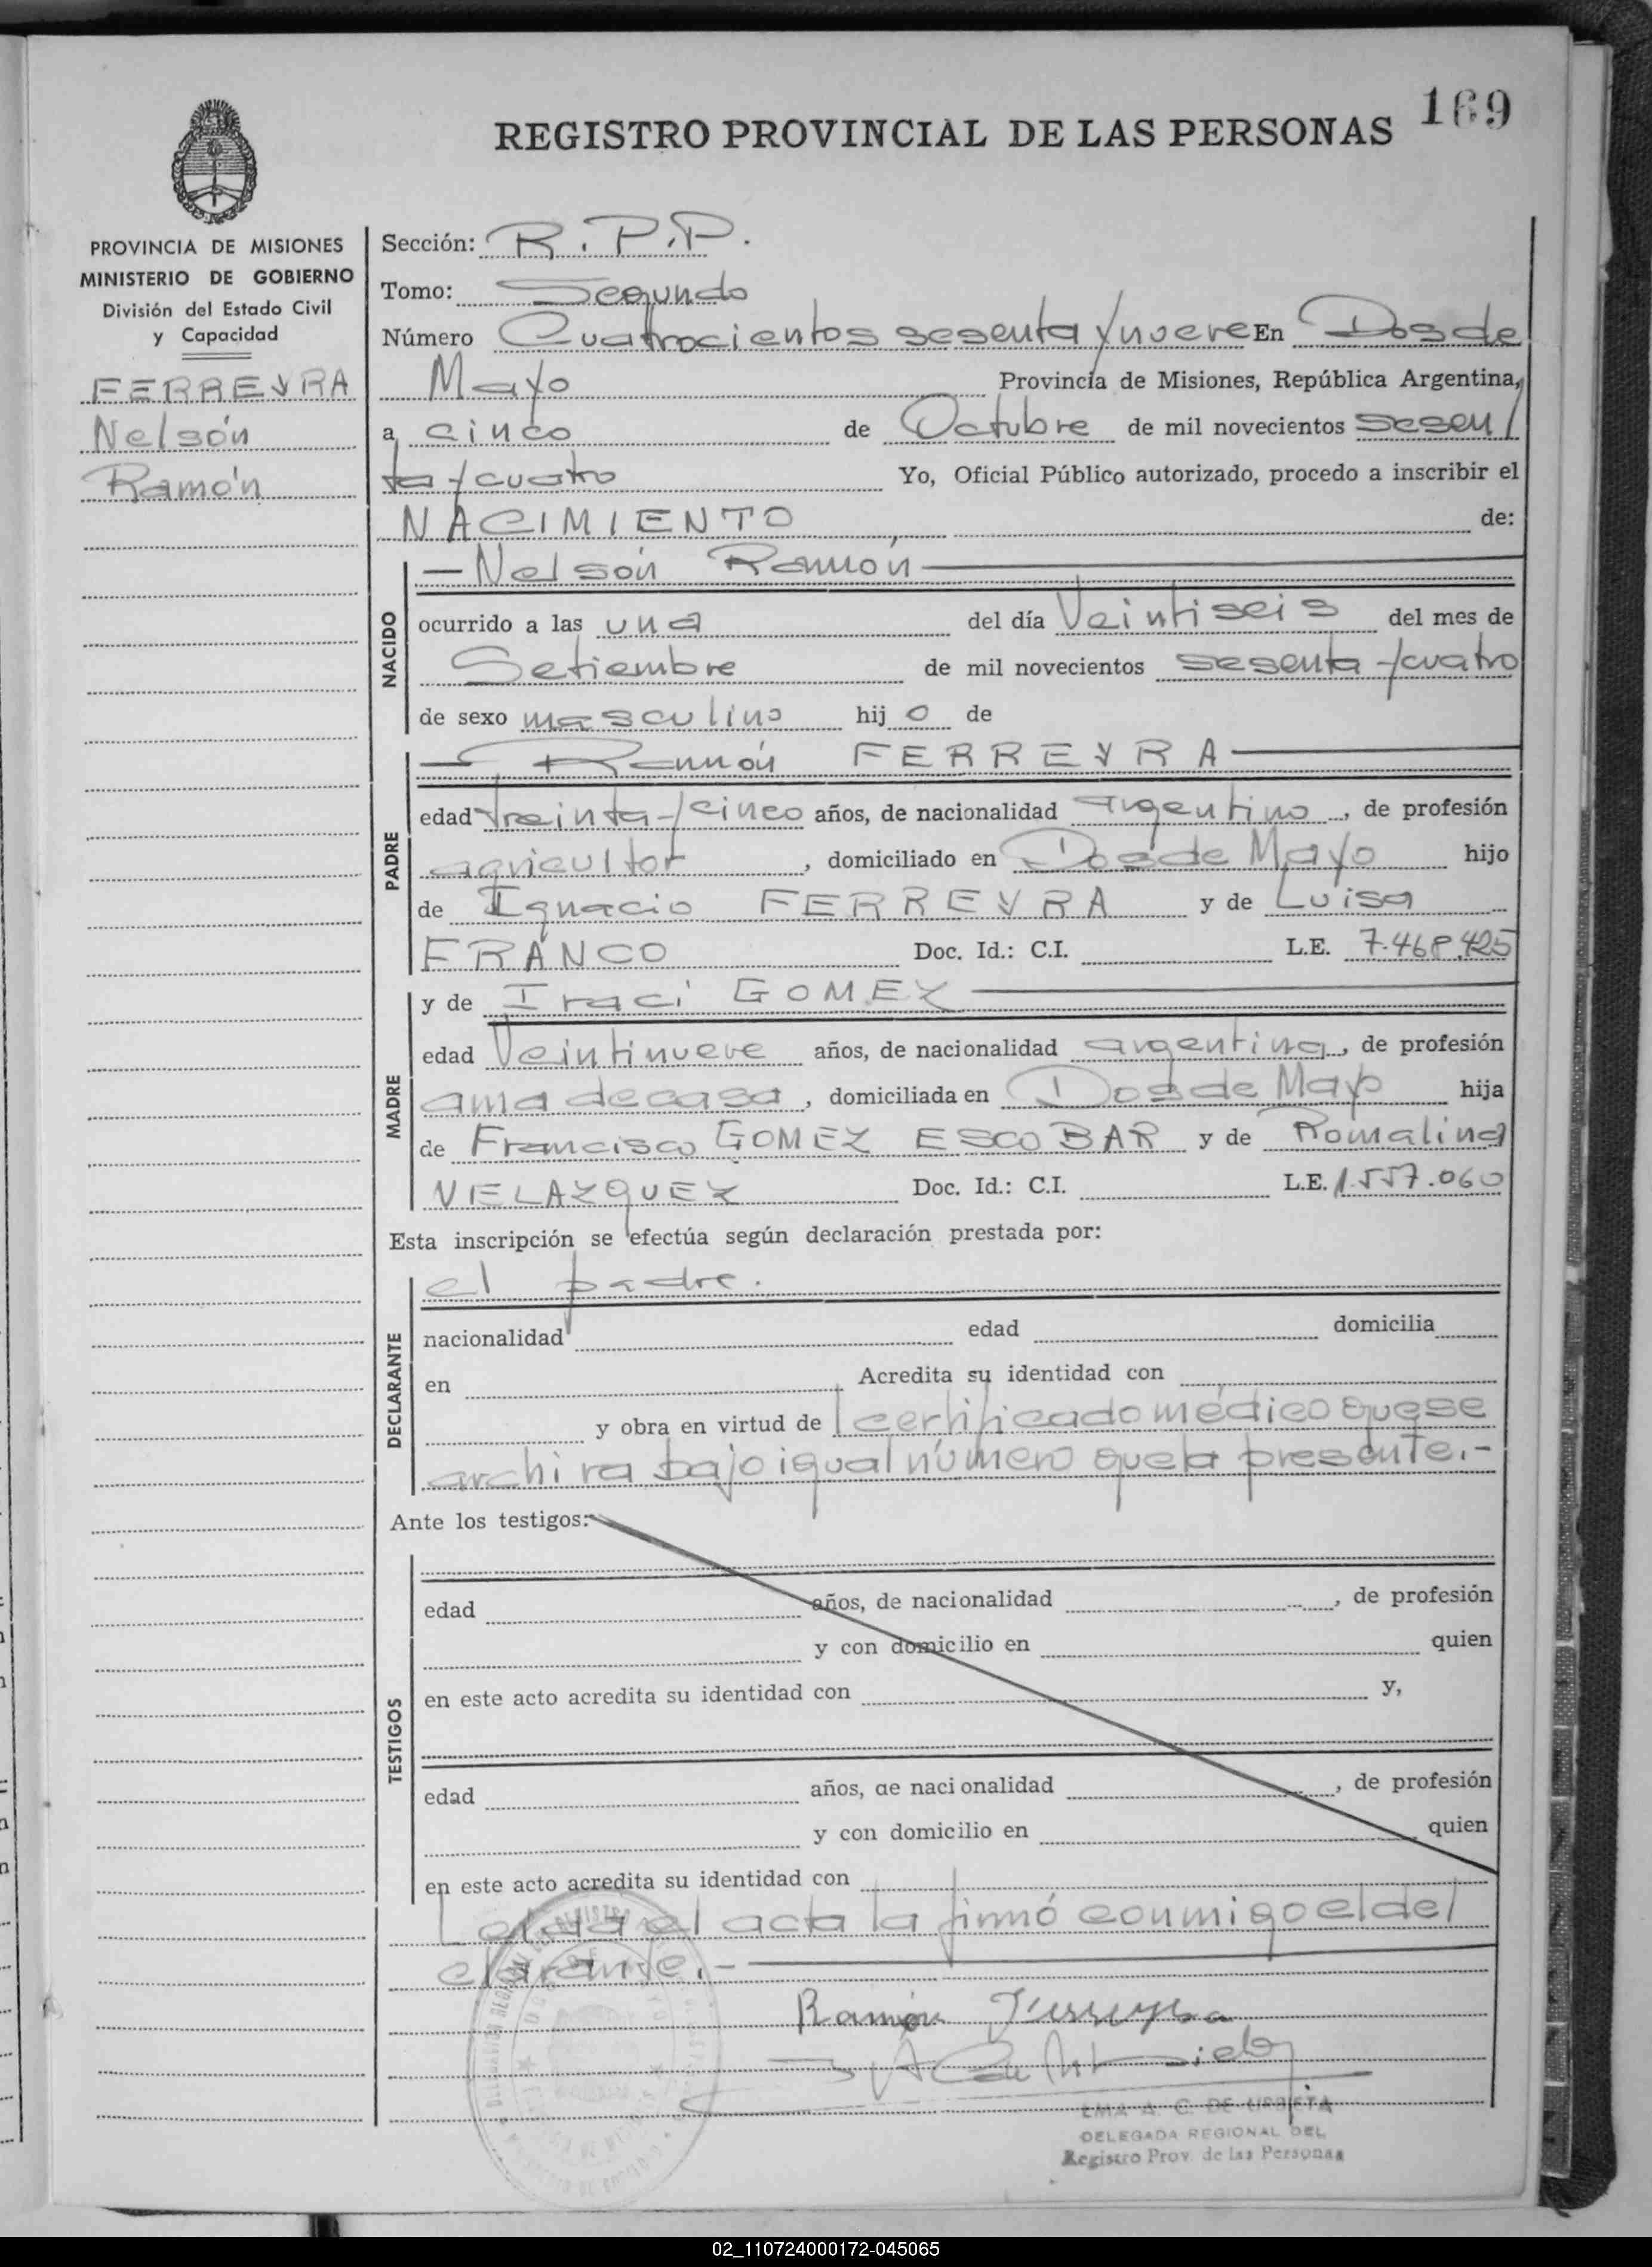 169
REGISTRO PROVINCIAL DE LAS PERSONAS
PROVINCIA DE MISIONES
MINISTERIO DE GOBIERNO
División del Estado Civil
y Capacidad
FERREYRA
Nelsón
Ramón
Sección: R.P.P.
Tomo: Segundo
Número Cuatrocientos sesenta y nueve En Dos de
Mayo Provincia de Misiones, República Argentina,
a cinco de Octubre de mil novecientos sesen/
ta y cuatro Yo, Oficial Público autorizado, procedo a inscribir el
NACIMIENTO, de:
NACIDO
—Nelsón Ramón—
ocurrido a las una del día Veintiseis del mes de
Setiembre de mil novecientos sesenta y cuatro
de sexo masculino hij o de
PADRE
— Ramón FERREYRA —
edad treinta y cinco años, de nacionalidad argentino, de profesión
agricultor, domiciliado en Dos de Mayo hijo
de Ignacio FERREYRA y de Luisa
FRANCO Doc. Id.: C.I. L.E. 7.468.425
MADRE
y de Iraci GOMEZ —
edad Veintinueve años, de nacionalidad argentina, de profesión
ama de casa, domiciliada en Dos de Mayo hija
de Francisco GOMEZ ESCOBAR y de Romalina
VELAZQUEZ Doc. Id.: C.I. L.E. 1.557.060
Esta inscripción se efectúa según declaración prestada por:
DECLARANTE
el padre.
nacionalidad edad domicilia
en Acredita su identidad con
y obra en virtud de certificado médico que se
archiva bajo igual número que la presente.-
Ante los testigos:
TESTIGOS
edad años, de nacionalidad , de profesión
y con domicilio en quien
en este acto acredita su identidad con y,
edad años, de nacionalidad , de profesión
y con domicilio en quien
en este acto acredita su identidad con
Leida el acta la firmó conmigo el de/
clarante.-
Ramón Ferreyra
EMA A. C. DE URBIETA
DELEGADA REGIONAL DEL
Registro Prov. de las Personas
02_110724000172-045065